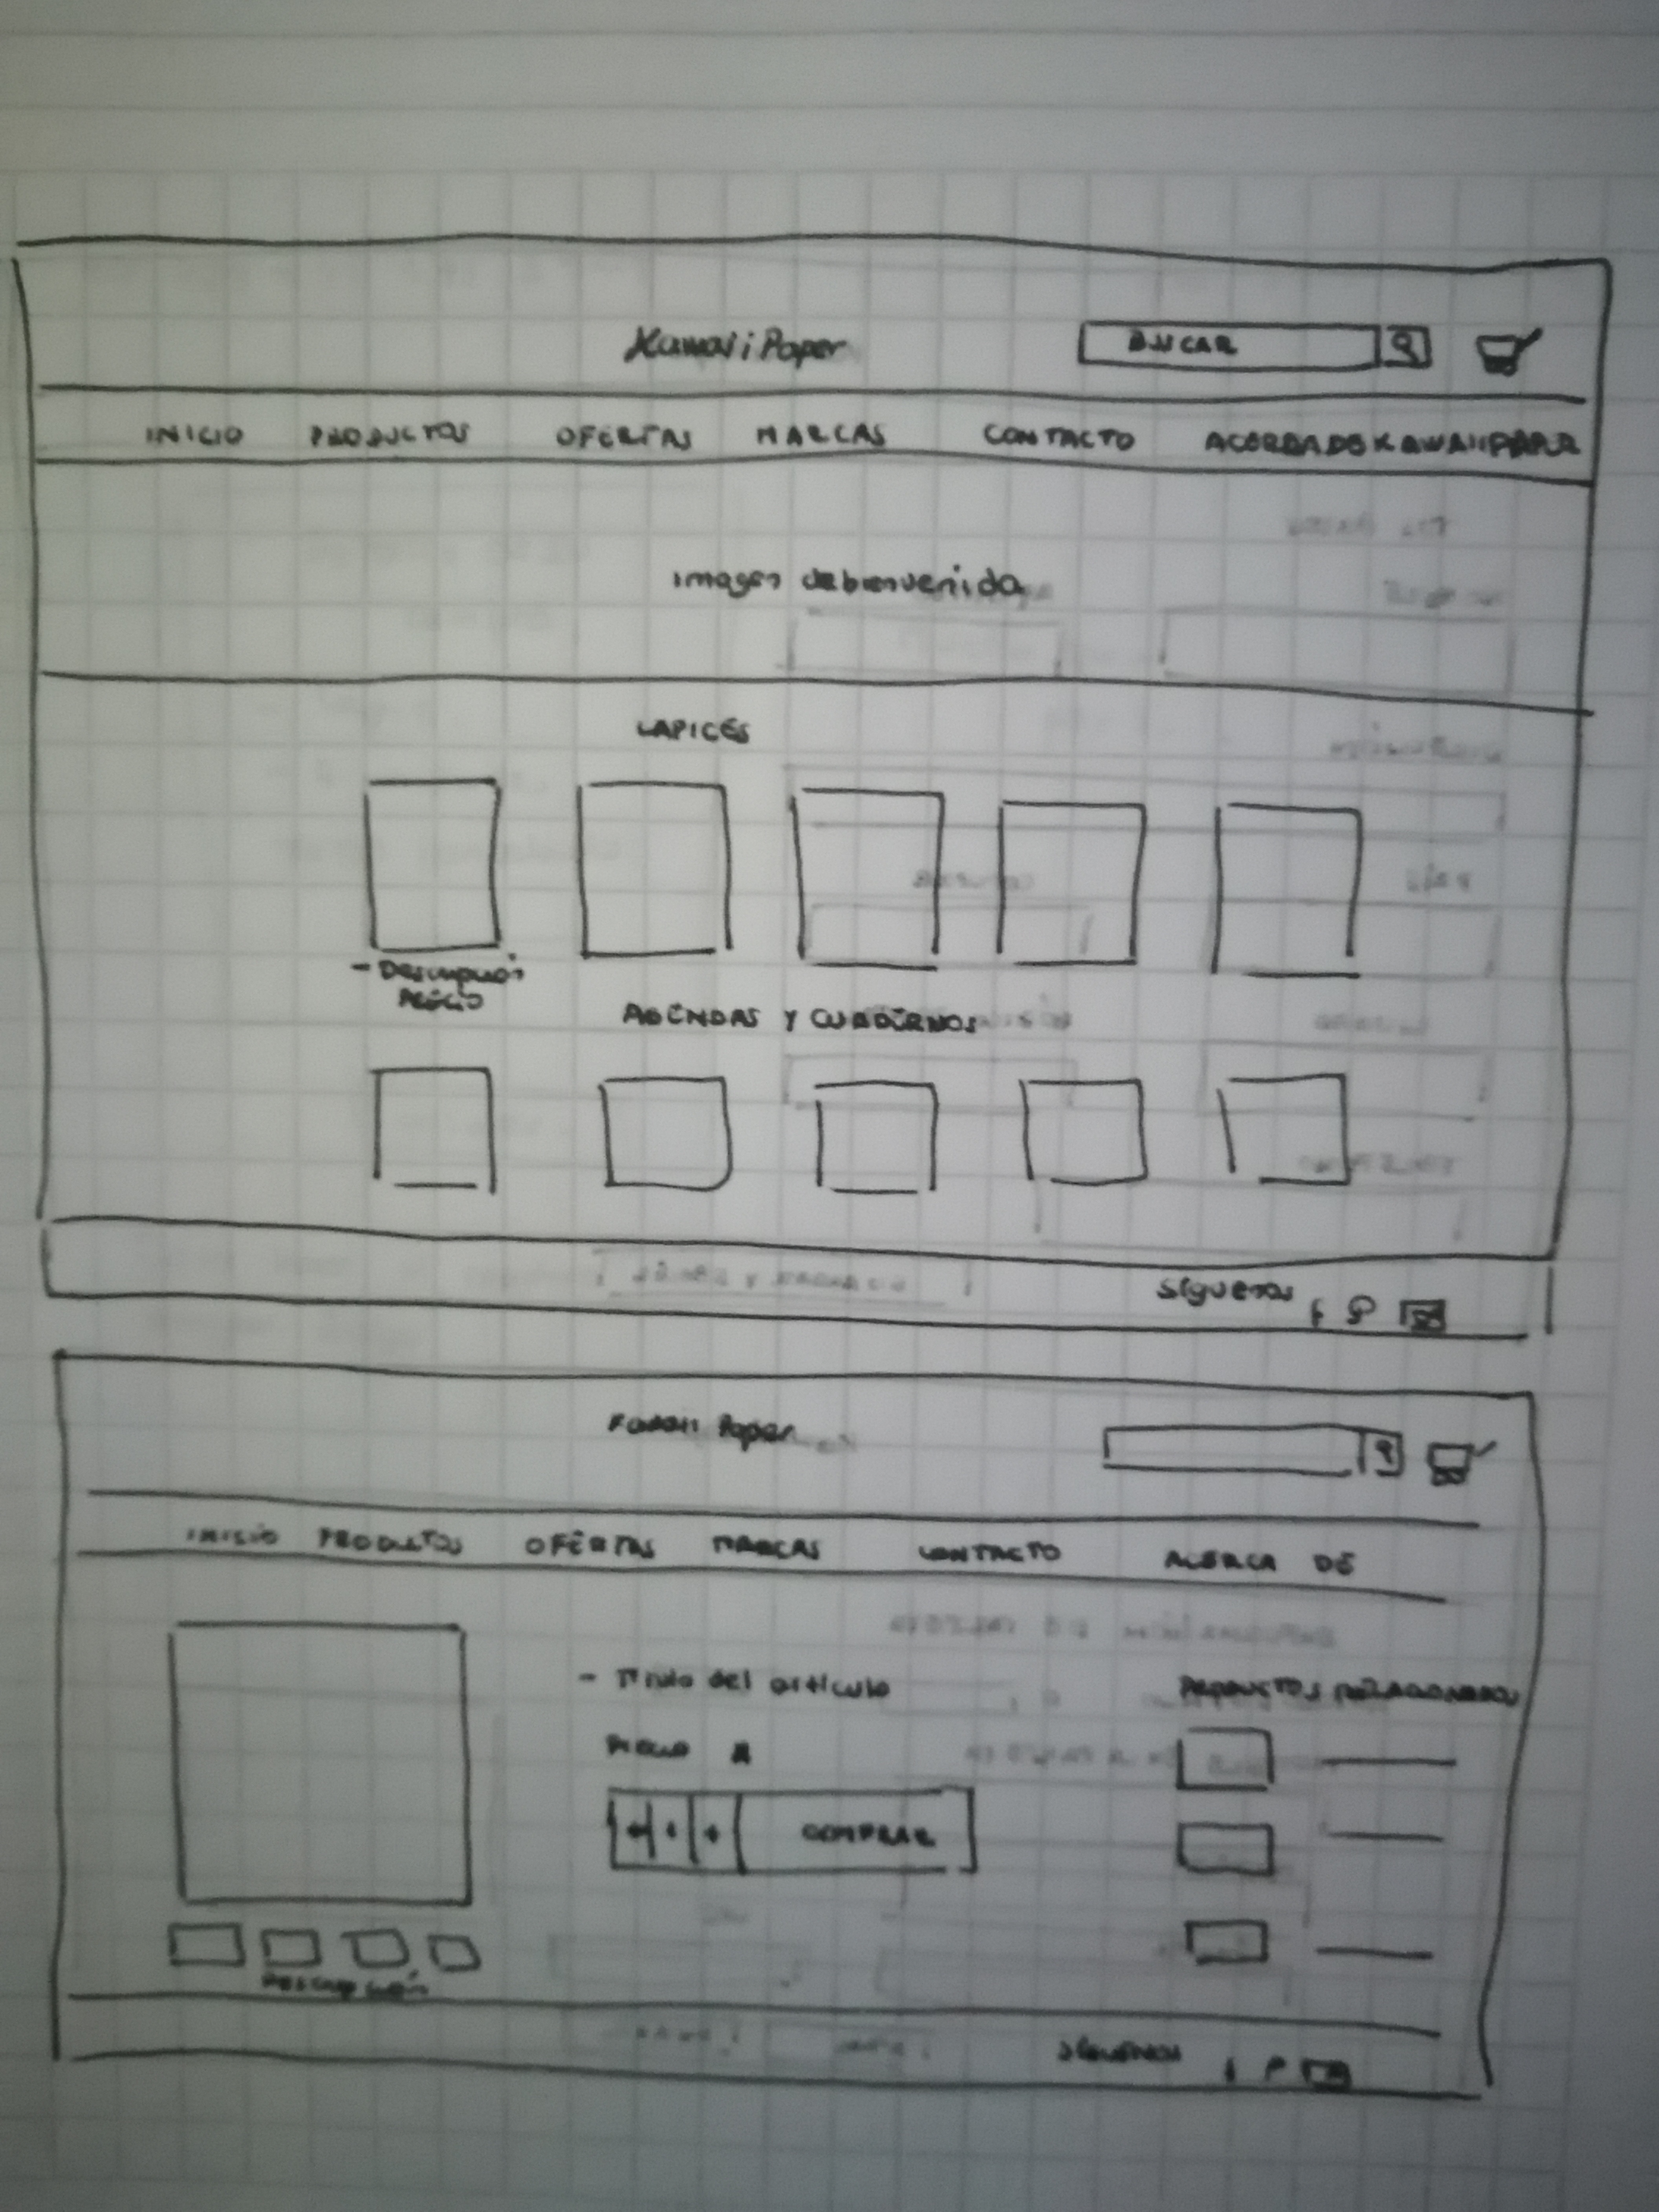 Kawaii Paper BUSCAR
INICIO PRODUCTOS OFERTAS MARCAS CONTACTO ACERCA DE KAWAIIPAPER
Imagen de bienvenida
LAPICES
- Descripción
Precio
AGENDAS Y CUADERNOS
Síguenos f
Kawaii Paper
INICIO PRODUCTOS OFERTAS MARCAS CONTACTO ACERCA DE
- Titulo del articulo PRODUCTOS RELACIONADOS
Precio
+ COMPRAR
Descripción
SÍGUENOS